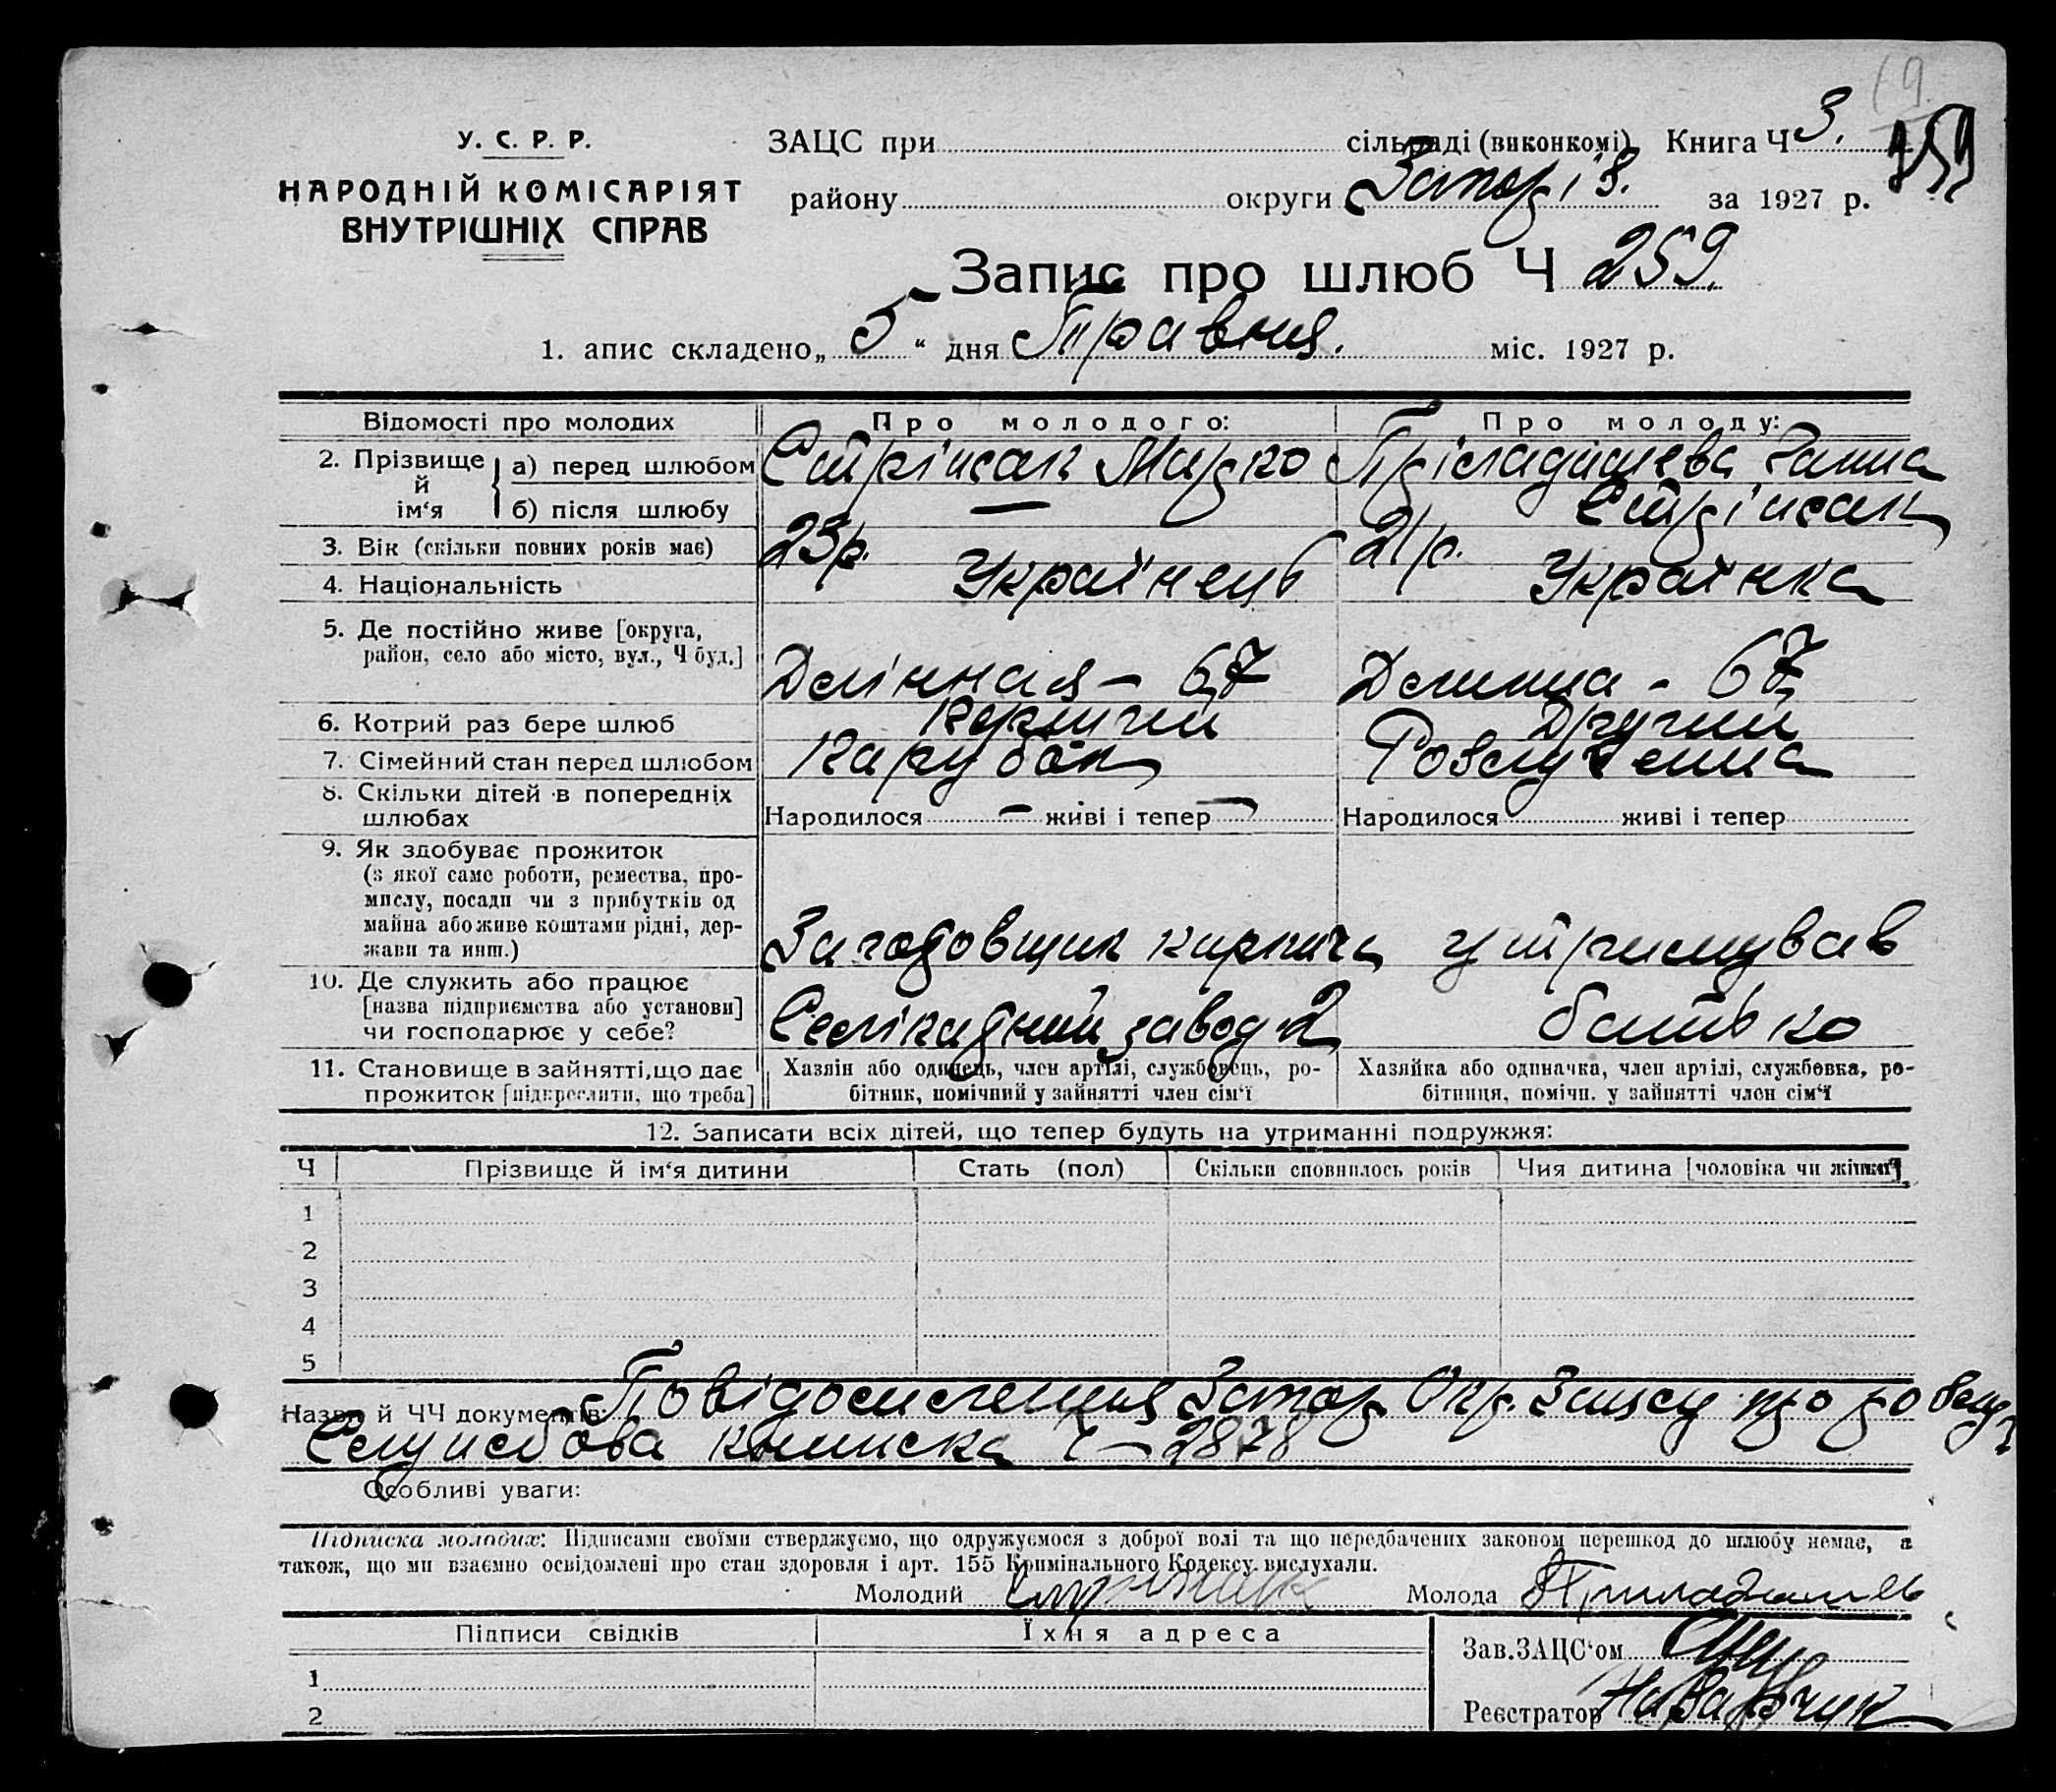 19.
У. С. Р. Р.
НАРОДНІЙ КОМІСАРІЯТ
ВНУТРІШНІХ СПРАВ
ЗАЦС при сільраді (виконкомі) Книга Ч 3.
259
району округи Запоріз. за 1927 р.
Запис про шлюб Ч 259.
1. апис складено „ 5 “ дня Травня. міс. 1927 р.
Відомості про молодих Про молодого: Про молоду:
2. Прізвище й ім‘я а) перед шлюбом Стріжак Марко Ганна
б) після шлюбу — Стріжак
3. Вік (скільки повних років має) 23р. 21р.
4. Національність Українець Українка
5. Де постійно живе [округа,
район, село або місто, вул., Ч буд.]
Долінная – 67 Долинна - 67
6. Котрий раз бере шлюб Перший Другий
7. Сімейний стан перед шлюбом Парубок Розлучена
8. Скільки дітей в попередніх
шлюбах
Народилося — живі і тепер — Народилося живі і тепер
9. Як здобуває прожиток
(з якої саме роботи, ремества, про-
мислу, посади чи з прибутків од
майна або живе коштами рідні, дер-
жави та инш.)
кирпича утримував
10. Де служить або працює
[назва підприємства або установи]
чи господарює у себе?
завод 2 батько
11. Становище в зайнятті, що дає
прожиток [підкреслити, що треба]
Хазяїн або одинець, член артілі, службовець, ро-
бітник, помічний у зайнятті член сім‘ї
Хазяйка або одиначка, член артілі, службовка, ро-
бітниця, помічн. у зайнятті член сім‘ї
12. Записати всіх дітей, що тепер будуть на утриманні подружжя:
Ч Прізвище й ім‘я дитини Стать (пол) Скільки сповнилось років Чия дитина [чоловіка чи жінки]
1
2
3
4
5
Назви й ЧЧ документів: Повідомлення Запор. Окр. Зацсу про розлуч
Службова книжка Ч – 2878
Особливі уваги:
Підписка молодих: Підписами своїми стверджуємо, що одружуємося з доброї волі та що передбачених законом перешкод до шлюбу немає, а
також, що ми взаємно освідомлені про стан здоровля і арт. 155 Кримінального Кодексу вислухали.
Молодий Молода
Підписи свідків Їхня адреса
Зав. ЗАЦС‘ом
1
Реєстратор
2